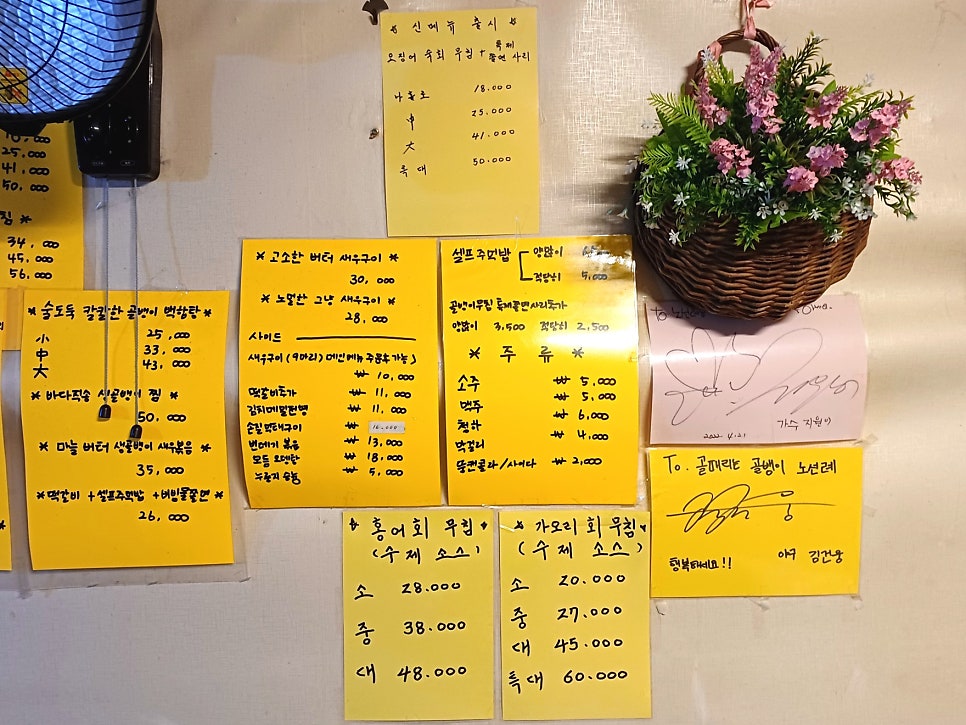 신메뉴 출시
오징어 숙회 무침 + 특제 쫄면 사리
나홀로 18.000
中 25.000
大 41.000
특대 50.000
25,000
41,000
50,000
찜 *
34,000
45,000
56,000
* 술도둑 칼칼한 골뱅이 백합탕
小 25,000
中 33,000
大 43,000
* 바다직송 생골뱅이 찜 *
50,000
* 마늘 버터 생골뱅이 새우볶음 *
35,000
* 떡갈비 + 셀프주먹밥 + 비빔물쫄면 *
26,000
* 고소한 버터 새우구이 *
30,000
* 노멀한 그냥 새우구이 *
28,000
사이드
새우구이 (9마리) (메인메뉴 주문후 가능)
₩ 10,000
떡갈비추가 ₩ 11,000
김치메밀전병 ₩ 11,000
손질 먹태구이 ₩ 16,000
번데기 볶음 ₩ 13,000
모듬 오뎅탕 ₩ 18,000
누룽지 숭늉 ₩ 5,000
셀프주먹밥 양많이
적당히 5,000
골뱅이무침 특제쫄면사리추가
양많이 3,500 적당히 2,500
* 주류 *
소주 ₩ 5,000
맥주 ₩ 5,000
청하 ₩ 6,000
막걸리 ₩ 4,000
뚱캔콜라/사이다 ₩ 2,000
홍어회 무침
(수제 소스)
소 28.000
중 38.000
대 48.000
가오리 회 무침
(수제 소스)
소 20.000
중 27.000
대 45.000
특대 60.000
To
가수 지원이
2022 4.21
To. 골때리는 골뱅이 노선례
행복하세요!!
야구 김건웅